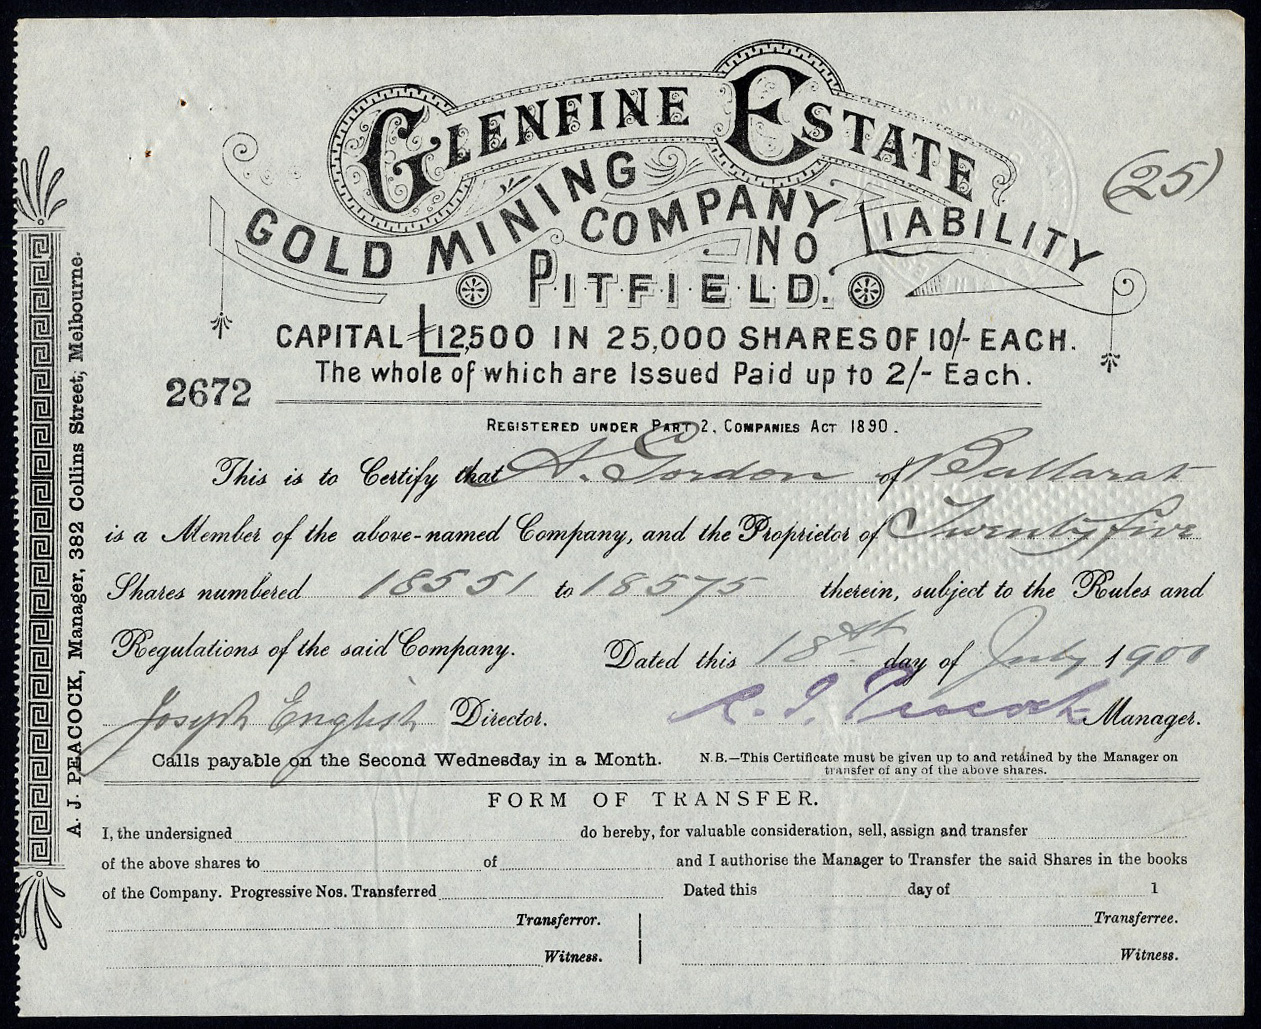 GLENFINE ESTATE
GOLD MINING COMPANY NO LIABILITY
PITFIELD.
(25)
CAPITAL £12,500 IN 25,000 SHARES OF 10/- EACH.
The whole of which are Issued Paid up to 2/- Each.
2672
REGISTERED UNDER PART 2, COMPANIES ACT 1890.
This is to Certify that A. Gordon of Ballarat
is a Member of the above-named Company, and the Proprietor of Twenty five
Shares numbered 18551 to 18575 therein, subject to the Rules and
Regulations of the said Company. Dated this 18th day of July 1900
Joseph English Director. A. J. Peacock Manager.
Calls payable on the Second Wednesday in a Month. N.B.—This Certificate must be given up to and retained by the Manager on
transfer of any of the above shares.
FORM OF TRANSFER.
I, the undersigned do hereby, for valuable consideration, sell, assign and transfer
of the above shares to of and I authorise the Manager to Transfer the said Shares in the books
of the Company. Progressive Nos. Transferred Dated this day of 1
Transferror. Transferree.
Witness. Witness.
A. J. PEACOCK, Manager, 382 Collins Street, Melbourne.